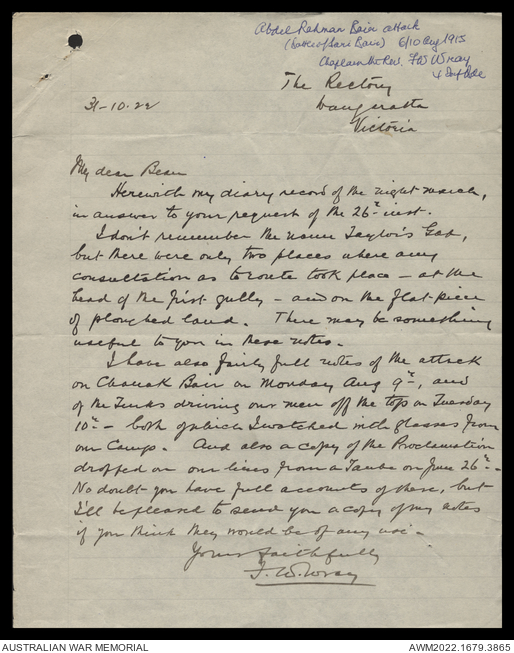 Abdel Rahman Bair attack
(Battle of Sari Bair) 6/10 Aug 1915
Chaplain the Rev. FW Wray
4 Inf Bde
The Rectory
Wangaratta
Victoria
31-10-22
My dear Bean
Herewith my diary record of the night march,
in answer to your request of the 26th inst.
I don't remember the name Taylor's Gap,
but there were only two places where any
consultation as to route took place - at the
head of the first gully - and on the flat piece
of ploughed land. There may be something
useful to you in these notes.
I have also fairly full notes of the attack
on Chanak Bair on Monday Aug 9th, and
of the Turks driving our men off the top on Tuesday
10th - both of which I watched with glasses from
our Camp. And also a copy of the Proclamation
dropped on our lines from a Taube on June 26th -
No doubt you have full accounts of these, but
I'll be pleased to send you a copy of my notes
if you think they would be of any use -
Yours faithfully
F. W. Wray
AUSTRALIAN WAR MEMORIAL
AWM2022.1679.3865